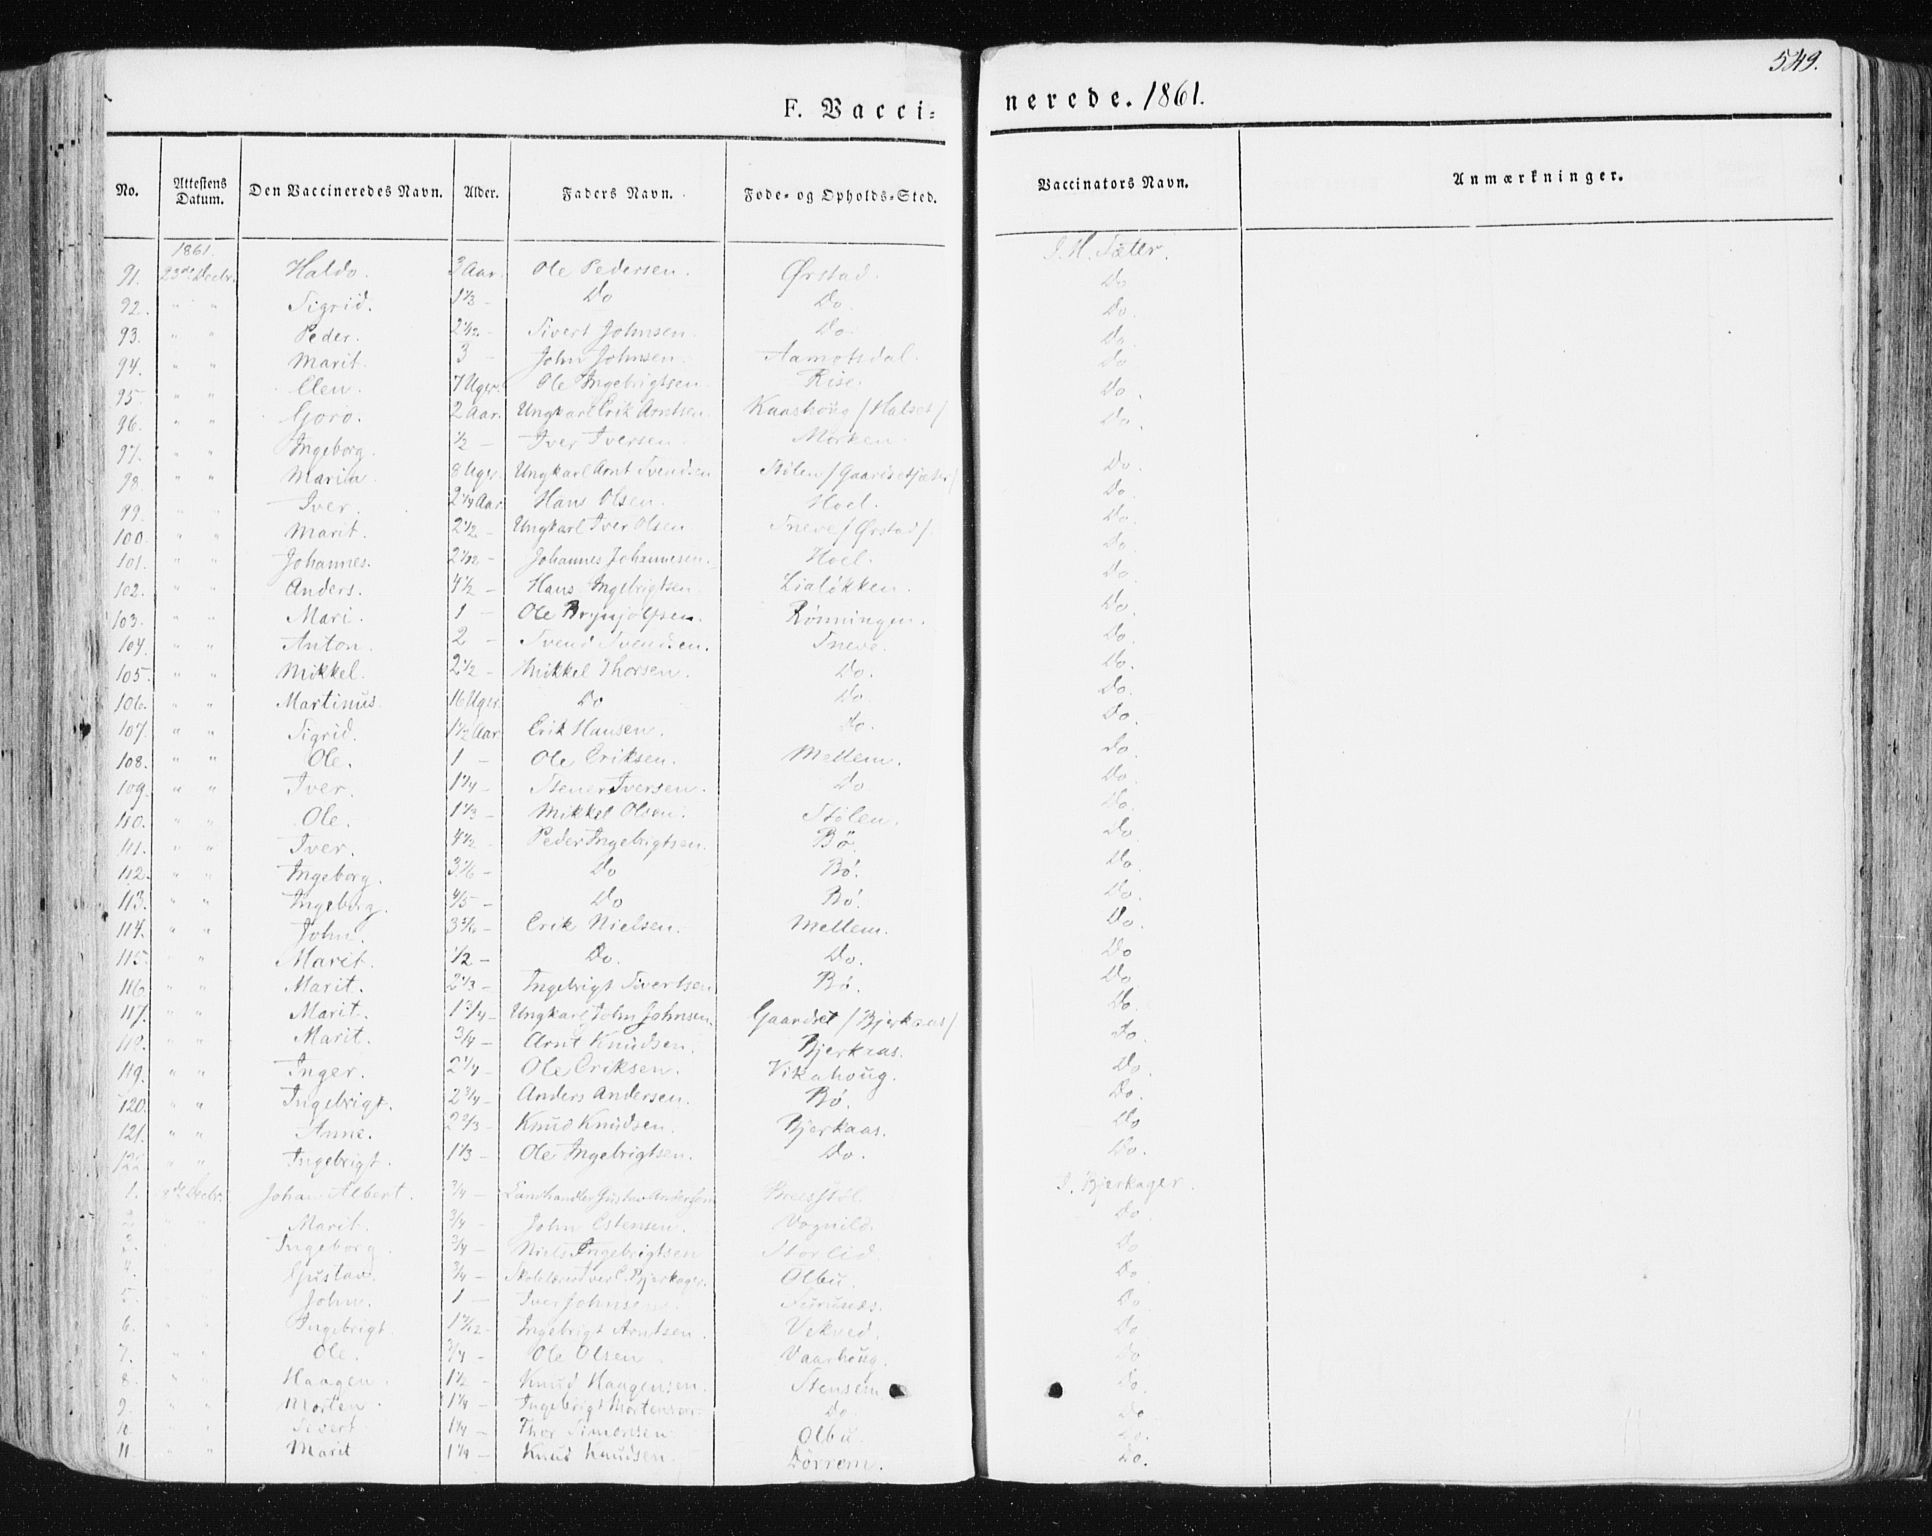 549.
F. Vacci= nerede. 1861.
No. Attestens Datum. Den Vaccineredes Navn. Alder. Faders Navn. Føde= og Opholds=Sted. Vaccinators Navn. Anmærkninger.
1861.
91. 23de Decbr. Haldo. 3 Aar. Ole Pedersen. Ørstad. I. H. Sæter.
92. " " Sigrid. 1 1/3 - Do Do. Do
93. " " Peder. 2 1/12 - Sivert Johnsen. Do. Do.
94. " " Marit. 3 - John Johnsen. Aamotsdal. Do.
95. " " Elen. 7 Uger. Ole Ingebrigtsen. Rise. Do
96. " " Goro. 2 Aar. Ungkarl Erik Arntsen. Kaashoug /Halset/ Do.
97. " " Ingeborg. 1/2 - Iver Iversen. Morken. Do.
98. " " Marit. 8 Uger. Ungkarl Arnt Svendsen Stølen / Do.
99. " " Iver. 2 1/4 Aar. Hans Olsen. Hoel. Do.
100. " " Marit. 2 1/2 - Ungkarl Iver Olsen Sneve /Ørstad/. Do.
101. " " Johannes. 2 1/12 - Johannes Johannesen. Hoel. Do.
102. " " Anders. 4 1/2 - Hans Ingebrigtsen. Lialøkken. Do.
103. " " Mari. 1 - Ole Brynjolfsen. Rønningen. Do.
104. " " Anton. 2 - Svend Svendsen. Sneve. Do.
105. " " Mikkel. 2 1/2 - Mikkel Thorsen. Do. Do.
106. " " Martinus. 16 Uger. Do Do Do.
107. " " Sigrid. 1 1/2 Aar Erik Hansen. Do. Do.
108. " " Ole. 1 - Ole Eriksen. Mellem. Do
109. " " Iver. 1 1/4 - Stener Iversen. Do Do.
110. " " Ole. 1 1/3 - Mikkel Olsen. Stølen. Do
111. " " Iver. 4 1/2 - Peder Ingebrigtsen. Bø. Do
112. " " Ingeborg. 3 1/6 - Do Bø. Do
113. " " Ingebrig. 4/5 - Do Bø. Do
114. " " John. 3 5/6 - Erik Nielsen. Mellem. Do.
115. " " Marit. 1/2 - Do. Do. Do
116. " " Marit. 2 1/3 - Ingebrigt Sivertsen Bø. Do
117. " " Marit. 1 3/4 - Ungkarl John Johnsen. Gaardset /Bjerkaas/ Do.
118. " " Marit. 3/4 - Arnt Knudsen. Bjerkaas. Do.
119. " " Inger. 2 1/4 - Ole Eriksen. Vikahoug. Do.
120. " " Ingebrigt. 2 3/4 - Anders Andersen. Bø. Do.
121. " " Anne. 2 2/3 - Knud Knudsen. Bjerkaas. Do
122. " " Ingebrigt. 1 1/3 - Ole Ingebrigtsen. Do. Do.
1. Decbr. Johan Albert. 3/4 - Landhandler Gustav I. Bjerkager.
2. Marit. 3/4 - John Estensen. Vognild. Do.
3. Ingeborg. 3/4 - Niels Ingebrigtsen Storlid. Do
4. Gustav. 3/4 - Skolelærer Iver E. Bjerkager. Olbu. Do
5. John. 1 - Iver Johnsen. Furunæs. Do.
6. Ingebrigt. Ingebrigt Arntsen. Vekved. Do
7. Ole. 3/4 - Ole Olsen. Vaarhoug. Do
8. Haagen. 1 1/2 - Knud Haagensen. Stensem Do.
9. Morten. 1 1/4 - Ingebrigt Mortensen. Do. Do
10. Sivert 1 1/4 - Thor Simonsen Olbu. Do.
11. Marit 1 1/4 - Knud Knudsen. Dørrem. Do.